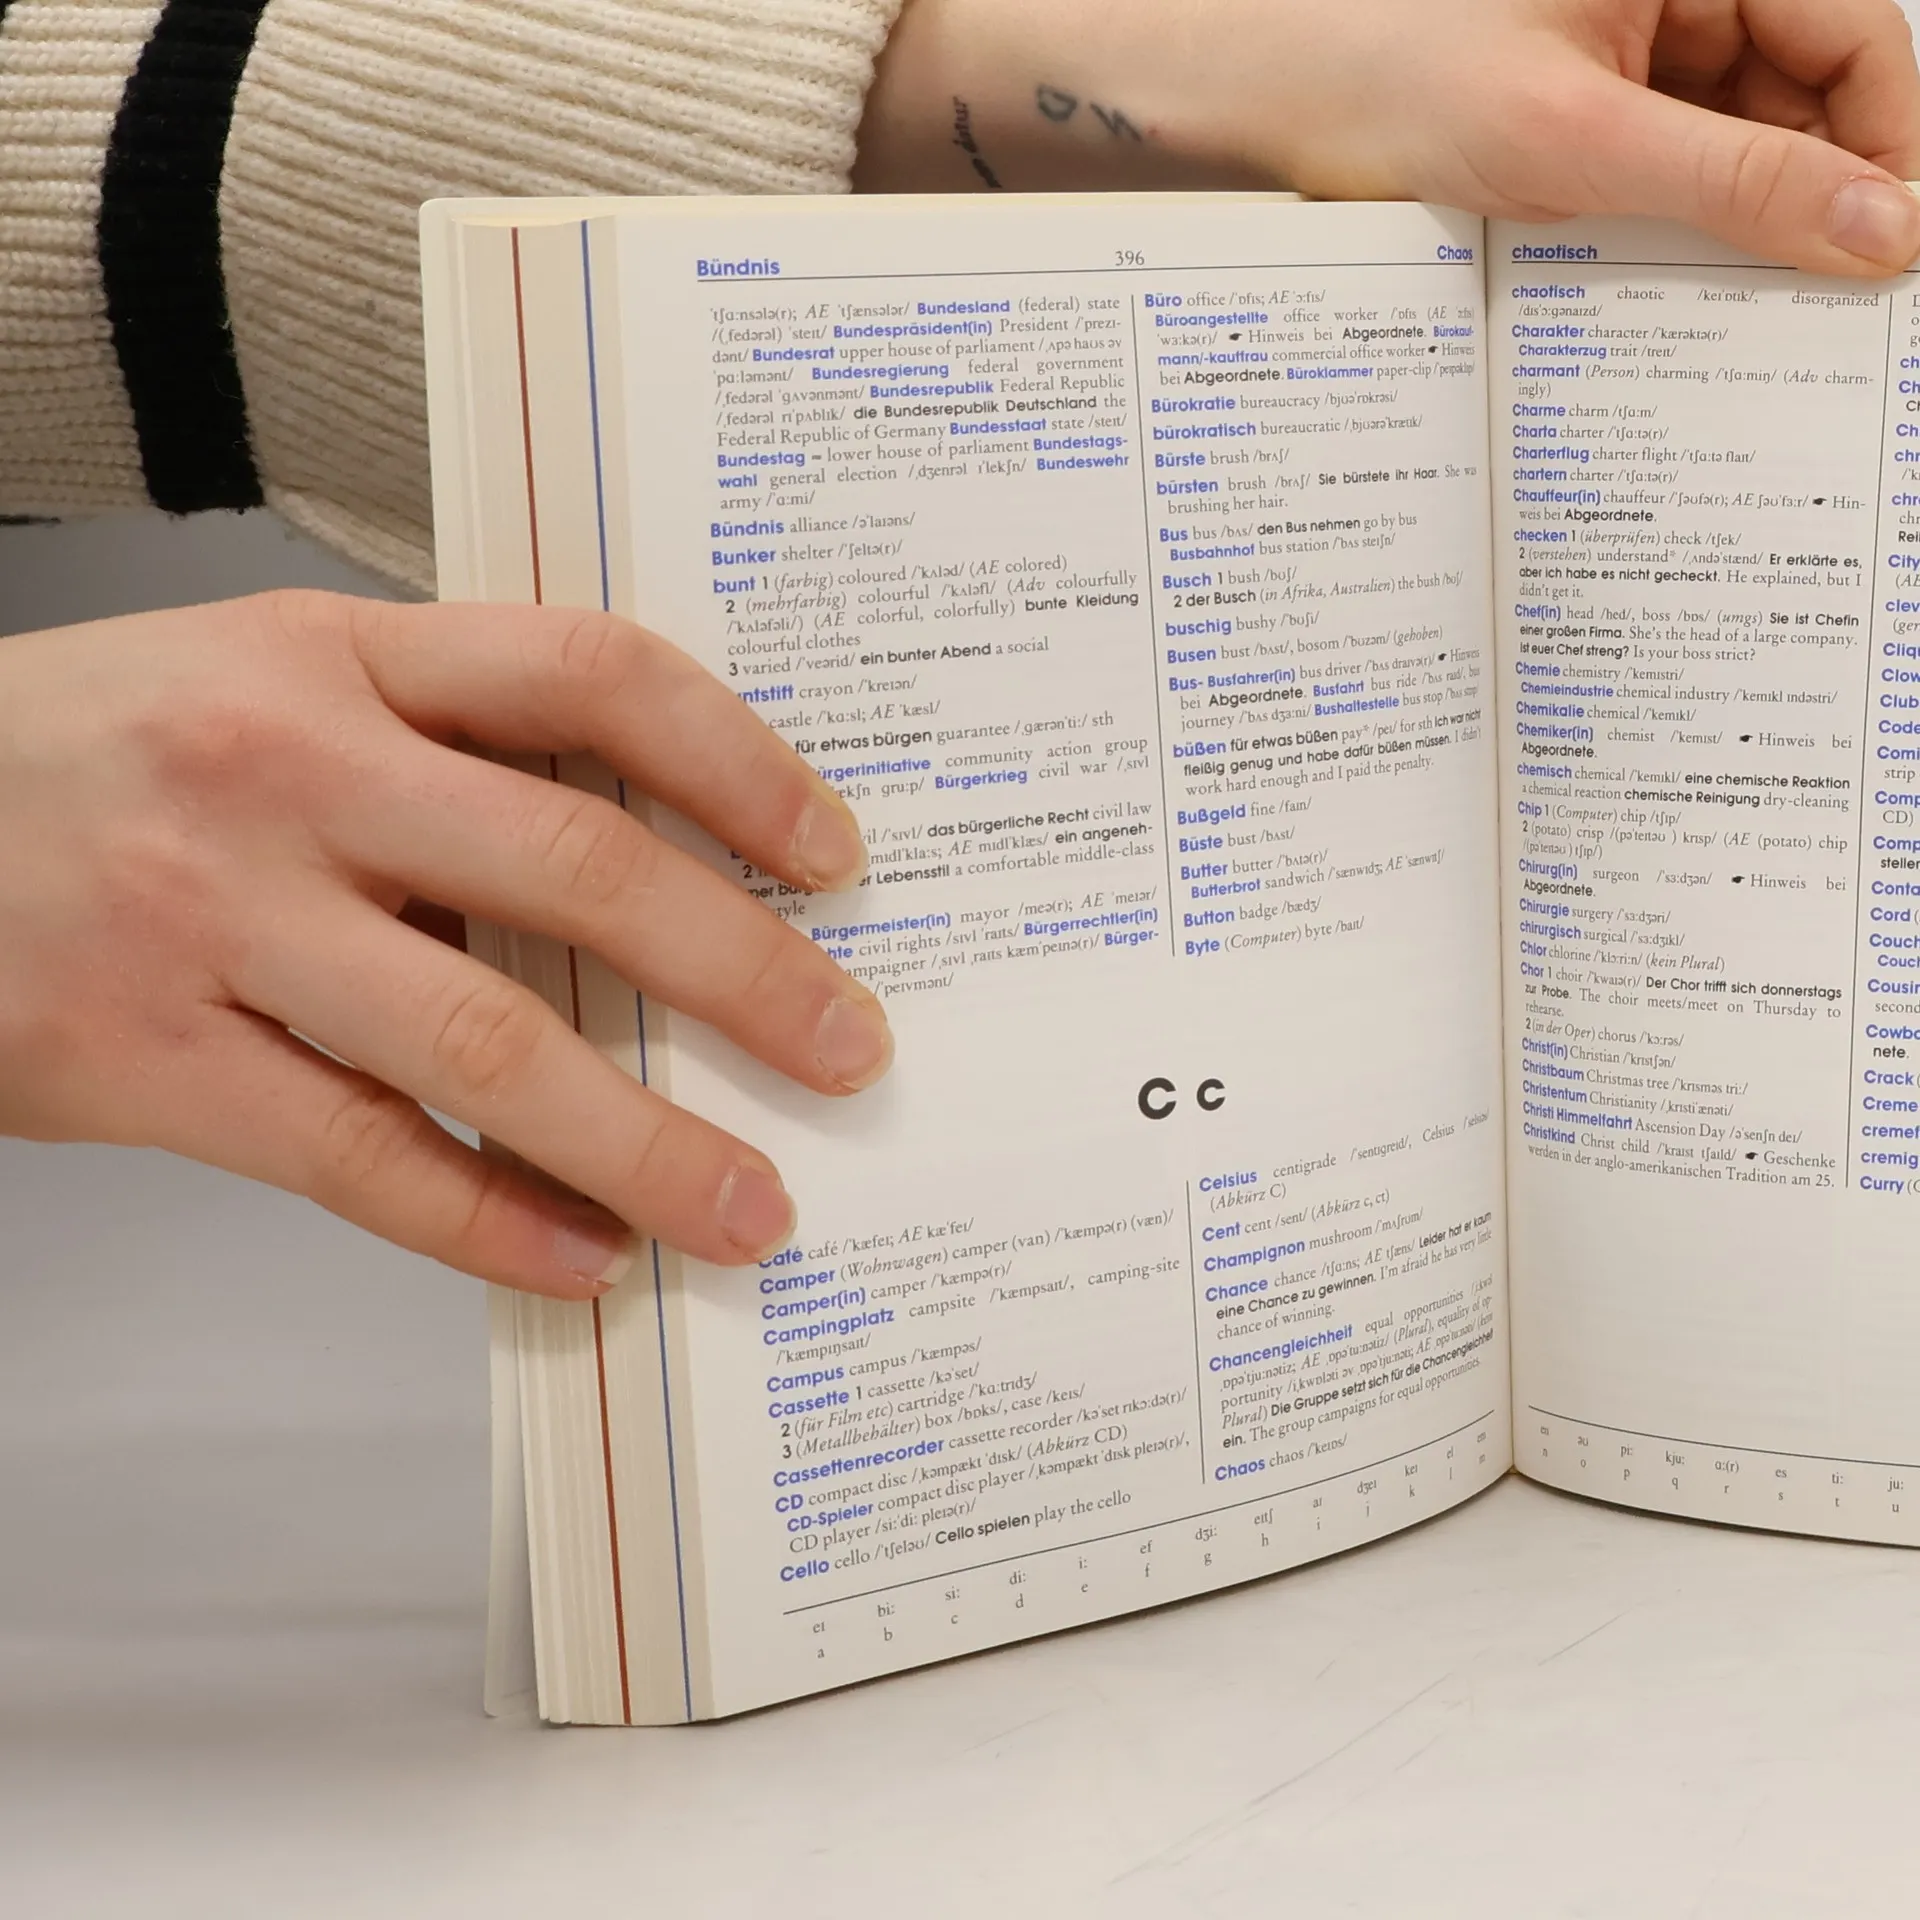 Bündnis 396 Chaos
ˈtʃɑːnsələ(r); AE ˈtʃænsələr/ Bundesland (federal) state
/(ˌfedərəl) ˈsteɪt/ Bundespräsident(in) President /ˈprezɪ-
dənt/ Bundesrat upper house of parliament /ˌʌpə haʊs əv
ˈpɑːləmənt/ Bundesregierung federal government
/ˌfedərəl ˈɡʌvənmənt/ Bundesrepublik Federal Republic
/ˌfedərəl rɪˈpʌblɪk/ die Bundesrepublik Deutschland the
Federal Republic of Germany Bundesstaat state /steɪt/
Bundestag ≈ lower house of parliament Bundestags-
wahl general election /ˌdʒenrəl ɪˈlekʃn/ Bundeswehr
army /ˈɑːmi/
Bündnis alliance /əˈlaɪəns/
Bunker shelter /ˈʃeltə(r)/
bunt 1 (farbig) coloured /ˈkʌləd/ (AE colored)
2 (mehrfarbig) colourful /ˈkʌləfl/ (Adv colourfully
/ˈkʌləfəli/) (AE colorful, colorfully) bunte Kleidung
colourful clothes
3 varied /ˈveərid/ ein bunter Abend a social
ntstift crayon /ˈkreɪən/
castle /ˈkɑːsl; AE ˈkæsl/
für etwas bürgen guarantee /ˌɡærənˈtiː/ sth
ürgerinitiative community action group
ekʃn ɡruːp/ Bürgerkrieg civil war /ˌsɪvl
il /ˈsɪvl/ das bürgerliche Recht civil law
ˌmɪdlˈklɑːs; AE mɪdlˈklæs/ ein angeneh-
2 er Lebensstil a comfortable middle-class
style
Bürgermeister(in) mayor /meə(r); AE ˈmeɪər/
hte civil rights /sɪvl ˈraɪts/ Bürgerrechtler(in)
ampaigner /ˌsɪvl ˌraɪts kæmˈpeɪnə(r)/ Bürger-
/ˈpeɪvmənt/
Büro office /ˈɒfɪs; AE ˈɔːfɪs/
Büroangestellte office worker /ˈɒfɪs (AE ˈɔːfɪs)
ˈwɜːkə(r)/ ☛ Hinweis bei Abgeordnete. Bürokauf-
mann/-kauffrau commercial office worker ☛ Hinweis
bei Abgeordnete. Büroklammer paper-clip /ˈpeɪpəklɪp/
Bürokratie bureaucracy /bjʊəˈrɒkrəsi/
bürokratisch bureaucratic /ˌbjʊərəˈkrætɪk/
Bürste brush /brʌʃ/
bürsten brush /brʌʃ/ Sie bürstete ihr Haar. She was
brushing her hair.
Bus bus /bʌs/ den Bus nehmen go by bus
Busbahnhof bus station /ˈbʌs steɪʃn/
Busch 1 bush /bʊʃ/
2 der Busch (in Afrika, Australien) the bush /bʊʃ/
buschig bushy /ˈbʊʃi/
Busen bust /bʌst/, bosom /ˈbʊzəm/ (gehoben)
Bus- Busfahrer(in) bus driver /ˈbʌs draɪvə(r)/ ☛ Hinweis
bei Abgeordnete. Busfahrt bus ride /ˈbʌs raɪd/, bus
journey /ˈbʌs dʒɜːni/ Bushaltestelle bus stop /ˈbʌs stɒp/
büßen für etwas büßen pay* /peɪ/ for sth Ich war nicht
fleißig genug und habe dafür büßen müssen. I didn't
work hard enough and I paid the penalty.
Bußgeld fine /faɪn/
Büste bust /bʌst/
Butter butter /ˈbʌtə(r)/
Butterbrot sandwich /ˈsænwɪdʒ; AE ˈsænwɪtʃ/
Button badge /bædʒ/
Byte (Computer) byte /baɪt/
C c
Café café /ˈkæfeɪ; AE kæˈfeɪ/
Camper (Wohnwagen) camper (van) /ˈkæmpə(r) (væn)/
Camper(in) camper /ˈkæmpə(r)/
Campingplatz campsite /ˈkæmpsaɪt/, camping-site
/ˈkæmpɪŋsaɪt/
Campus campus /ˈkæmpəs/
Cassette 1 cassette /kəˈset/
2 (für Film etc) cartridge /ˈkɑːtrɪdʒ/
3 (Metallbehälter) box /bɒks/, case /keɪs/
Cassettenrecorder cassette recorder /kəˈset rɪkɔːdə(r)/
CD compact disc /ˌkɒmpækt ˈdɪsk/ (Abkürz CD)
CD-Spieler compact disc player /ˌkɒmpækt ˈdɪsk pleɪə(r)/,
CD player /siːˈdiː pleɪə(r)/
Cello cello /ˈtʃeləʊ/ Cello spielen play the cello
Celsius centigrade /ˈsentɪɡreɪd/, Celsius /ˈselsiəs/
(Abkürz C)
Cent cent /sent/ (Abkürz c, ct)
Champignon mushroom /ˈmʌʃrʊm/
Chance chance /tʃɑːns; AE tʃæns/ Leider hat er kaum
eine Chance zu gewinnen. I'm afraid he has very little
chance of winning.
Chancengleichheit equal opportunities /ˌiːkwəl
ˌɒpəˈtjuːnətiz; AE ˌɒpəˈtuːnətiz/ (Plural), equality of op-
portunity /iˌkwɒləti əv ˌɒpəˈtjuːnəti; AE ˌɒpəˈtuːnəti/ (kein
Plural) Die Gruppe setzt sich für die Chancengleichheit
ein. The group campaigns for equal opportunities.
Chaos chaos /ˈkeɪɒs/
eɪ biː siː diː iː ef dʒiː eɪtʃ aɪ dʒeɪ keɪ el em
a b c d e f g h i j k l m
chaotisch
chaotisch chaotic /keɪˈɒtɪk/, disorganized
/dɪsˈɔːɡənaɪzd/
Charakter character /ˈkærəktə(r)/
Charakterzug trait /treɪt/
charmant (Person) charming /ˈtʃɑːmɪŋ/ (Adv charm-
ingly)
Charme charm /tʃɑːm/
Charta charter /ˈtʃɑːtə(r)/
Charterflug charter flight /ˈtʃɑːtə flaɪt/
chartern charter /ˈtʃɑːtə(r)/
Chauffeur(in) chauffeur /ˈʃəʊfə(r); AE ʃəʊˈfɜːr/ ☛ Hin-
weis bei Abgeordnete.
checken 1 (überprüfen) check /tʃek/
2 (verstehen) understand* /ˌʌndəˈstænd/ Er erklärte es,
aber ich habe es nicht gecheckt. He explained, but I
didn't get it.
Chef(in) head /hed/, boss /bɒs/ (umgs) Sie ist Chefin
einer großen Firma. She's the head of a large company.
Ist euer Chef streng? Is your boss strict?
Chemie chemistry /ˈkemɪstri/
Chemieindustrie chemical industry /ˈkemɪkl ɪndəstri/
Chemikalie chemical /ˈkemɪkl/
Chemiker(in) chemist /ˈkemɪst/ ☛ Hinweis bei
Abgeordnete.
chemisch chemical /ˈkemɪkl/ eine chemische Reaktion
a chemical reaction chemische Reinigung dry-cleaning
Chip 1 (Computer) chip /tʃɪp/
2 (potato) crisp /(pəˈteɪtəʊ ) krɪsp/ (AE (potato) chip
/(pəˈteɪtəʊ ) tʃɪp/)
Chirurg(in) surgeon /ˈsɜːdʒən/ ☛ Hinweis bei
Abgeordnete.
Chirurgie surgery /ˈsɜːdʒəri/
chirurgisch surgical /ˈsɜːdʒɪkl/
Chlor chlorine /ˈklɔːriːn/ (kein Plural)
Chor 1 choir /ˈkwaɪə(r)/ Der Chor trifft sich donnerstags
zur Probe. The choir meets/meet on Thursday to
rehearse.
2 (in der Oper) chorus /ˈkɔːrəs/
Christ(in) Christian /ˈkrɪstʃən/
Christbaum Christmas tree /ˈkrɪsməs triː/
Christentum Christianity /ˌkrɪstiˈænəti/
Christi Himmelfahrt Ascension Day /əˈsenʃn deɪ/
Christkind Christ child /ˈkraɪst tʃaɪld/ ☛ Geschenke
werden in der anglo-amerikanischen Tradition am 25.
City
(AE
clev
(ger
Cliq
Clow
Club
Code
Comi
strip
Comp
CD)
Comp
steller
Conta
Cord (
Couch
Couch
Cousin
second
Cowbo
nete.
Crack (
Creme
cremef
cremig
Curry (C
en əʊ piː kjuː ɑː(r) es tiː juː
n o p q r s t u